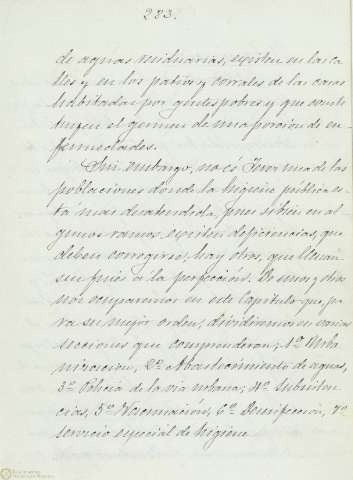 283.
de aguas residuarias, existen en las ca
lles y en los patios y corrales de las casas
habitadas por gentes pobres y que consti
tuyen el germen de una porción de en
fermedades.
Sin embargo, no és una de las
poblaciones donde la higiene pública es
tá mas desatendida, pues si bien en al
gunos ramos existen deficiencias, que
deben corregirse, hay otros, que llenan
sus fines á la perfección. De unos y otros
nos ocuparemos en este Capítulo que, pa
ra su mejor orden, dividiremos en varias
secciones que comprenderán; 1º Urba
nización, 2º Abastecimiento de aguas,
3º Policía de la via urbana; 4º Subsisten
cias, 5º Vacunación, 6º Desinfección, 7º
servicio especial de higiene